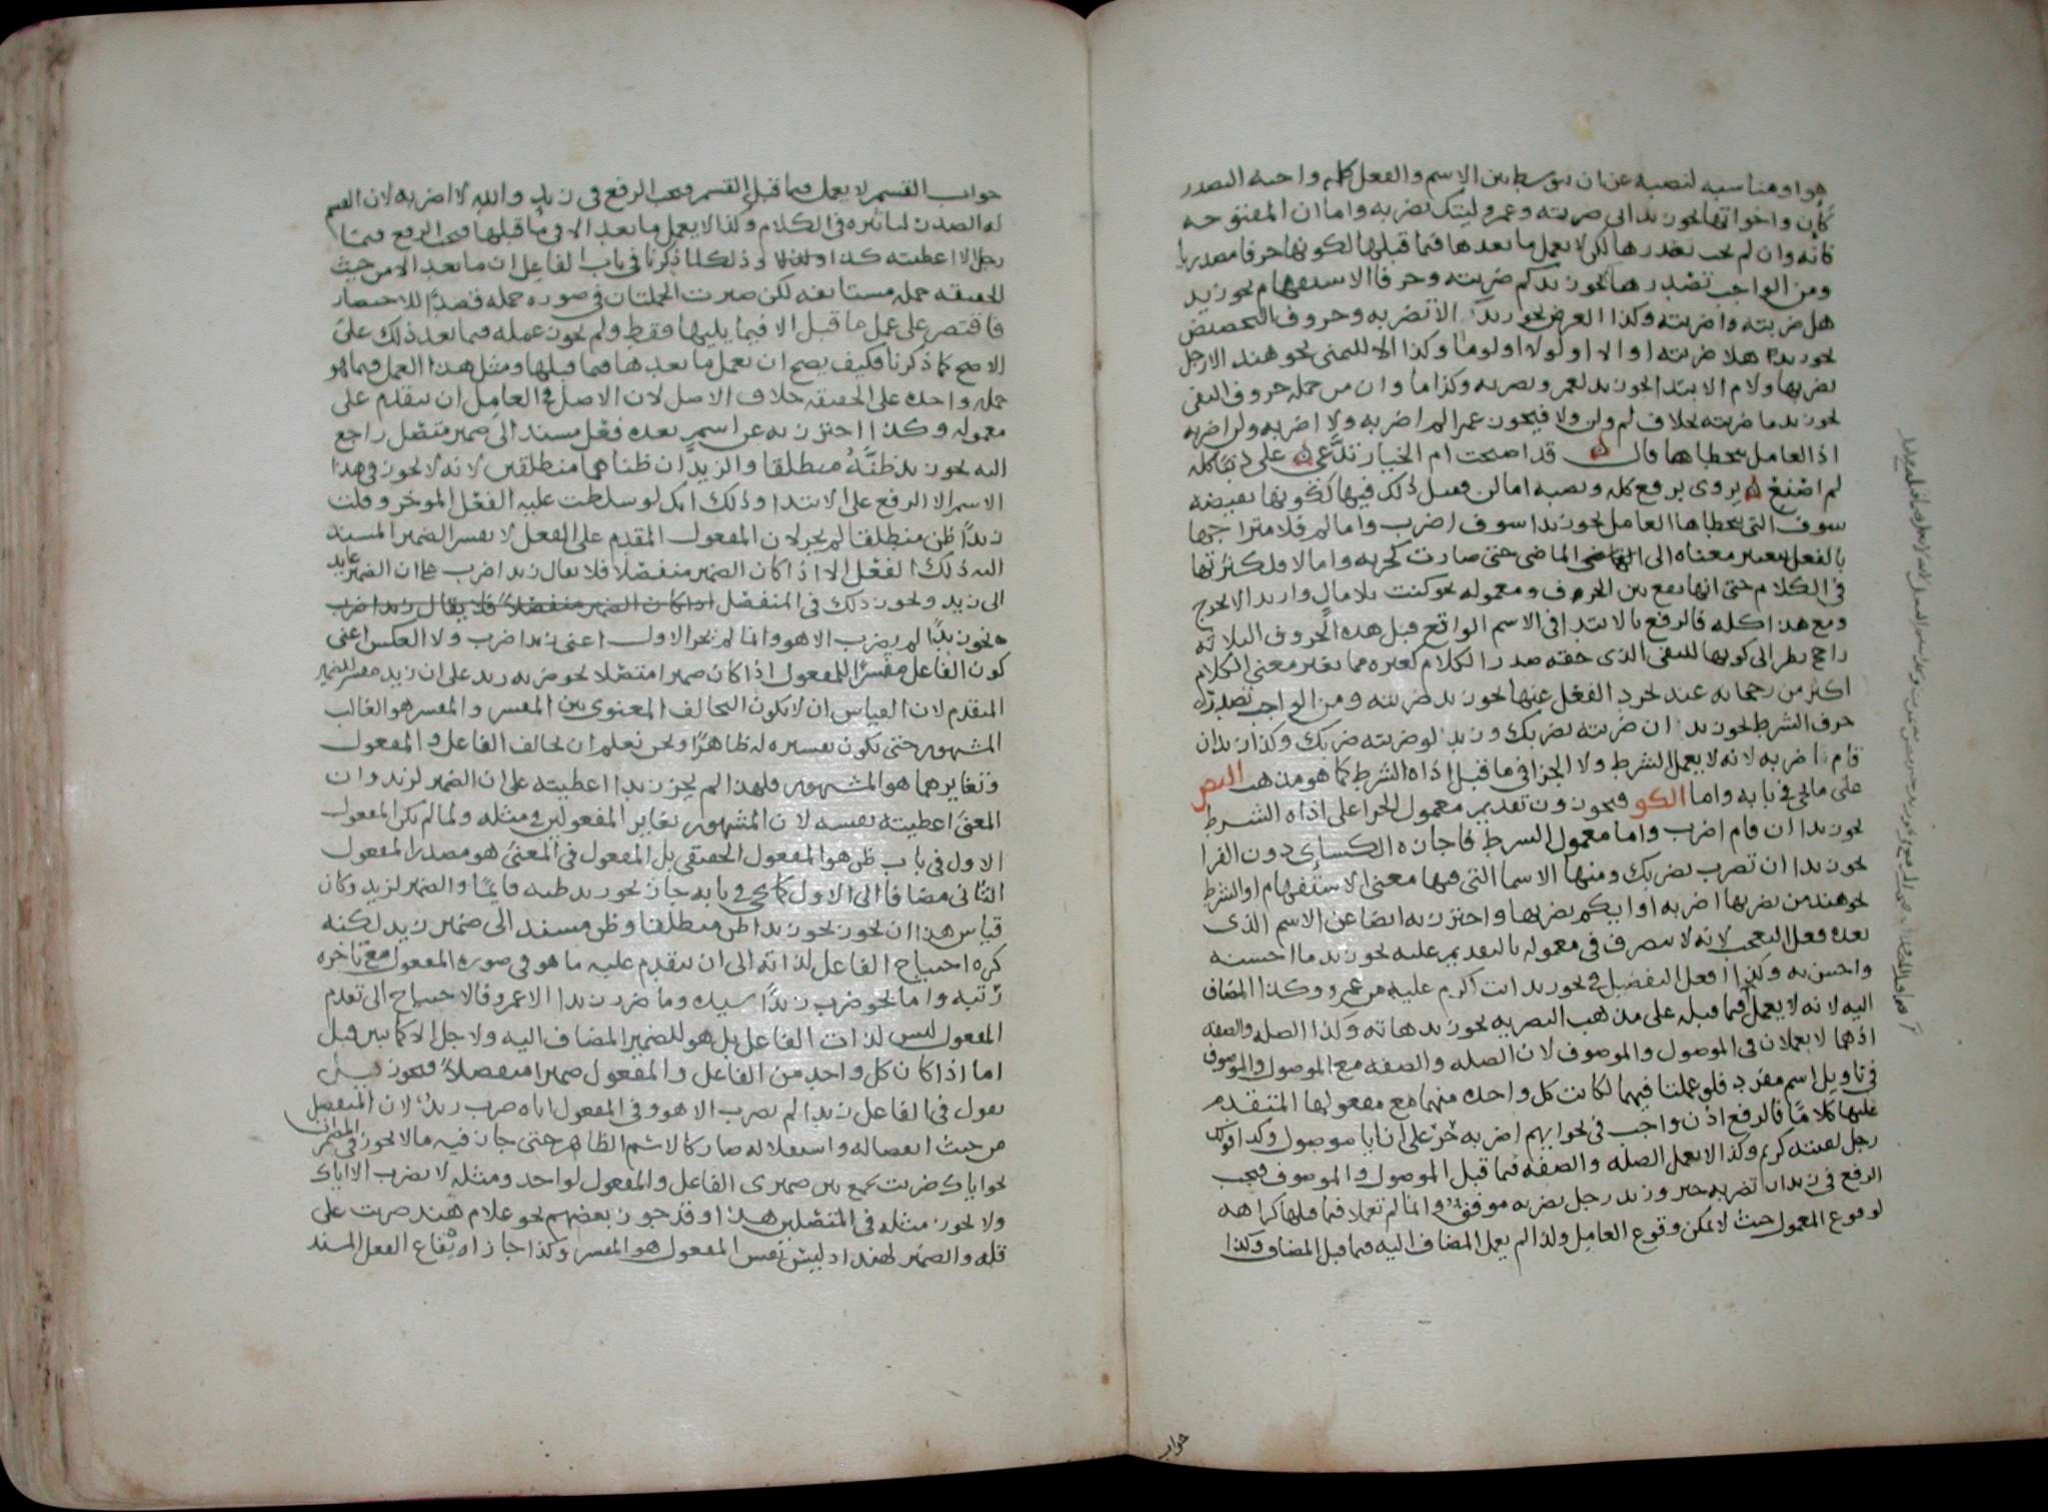 هو او مناسبه لنصبه عن ان يتوسط بين الاسم والفعل كلمة واجبة التصدر
كأن واخواتها نحو زيد اني ضربته وعمرو ليتك تضربه واما ان المفتوحة
فانه وان لم يجب تصدرها لكن لا يعمل ما بعدها فيما قبلها لكونها حرفا مصدريا
ومن الواجب تصدرها نحو زيد كم ضربته وحرفا الاستفهام نحو زيد
هل ضربته واضربته وكذا العرض نحو زيد الا تضربه وحروف التحضيض
نحو زيد هلا ضربته او الا او لولا او لوما وكذا الا للتمني نحو هند الا رجل
يضربها ولام الابتدا نحو زيد لعمرو يضربه وكذا ما وان من جملة حروف النفي
نحو زيد ما ضربته بخلاف لم ولن ولا فيجوز عمرا لم اضربه ولا اضربه ولن اضربه
اذ العامل يتخطاها قال قد اصبحت ام الخيار تدعي على ذنبا كله
لم اصنع يروى برفع كله ونصبه اما لن فقيل ذلك فيها لكونها نقيضة
سوف التي يتخطاها العامل نحو زيدا سوف اضرب واما لم فلامتزاجها
بالفعل بتغيير معناه الى الماضي حتى صارت كجزيه واما لا فلكثرتها
في الكلام حتى انها تقع بين الحرف ومعموله نحو كنت بلا مال واريد الا تخرج
ومع هذا كله فالرفع بالابتدا في الاسم الواقع قبل هذه الحروف الثلاثة
راجح نظرا الى كونها للنفي الذي حقه صدر الكلام كغيره مما يغير معنى الكلام
اكثر من رجحانه عند تجرد الفعل عنها نحو زيد ضربته ومن الواجب تصدره
حرف الشرط نحو زيد ان ضربته يضربك وزيد لو ضربته ضربك وكذا زيد ان
قام اضربه لانه لا يعمل الشرط ولا الجزا في ما قبل اداة الشرط كما هو مذهب البص
على ما يجي في بابه واما الكو فيجوزون تقديم معمول الجزا على اداة الشرط
نحو زيدا ان قام اضرب واما معمول الشرط فاجازه الكسائي دون الفرا
نحو زيدا ان تضرب يضربك ومنها الاسما التي فيها معنى الاستفهام او الشرط
نحو هند من يضربها اضربه او ايكم يضربها واحترز به ايضا عن الاسم الذي
بعده فعل التعجب لانه لا يتصرف في معموله بالتقديم عليه نحو زيد ما احسنه
واحسن به وكذا افعل التفضيل في نحو زيد انت اكرم عليه من عمرو وكذا المضاف
اليه لانه لا يعمل فيما قبله على مذهب البصرية نحو زيد هاته وكذا الصلة والصفة
اذ هما لا يعملان في الموصول والموصوف لان الصلة والصفة مع الموصول والموصوف
في تاويل اسم مفرد فلو عملتا فيهما لكانت كل واحدة منهما مع معمولها المتقدم
عليها كلاما فالرفع اذن واجب في نحو ايهم اضربه حر على ان ايا موصول وكذا قولك
رجل لقيته كريم وكذا لا يعمل الصلة والصفة فيما قبل الموصول والموصوف فيجب
الرفع في زيد ان تضربه خير وزيد رجل يضربه موفق وانما لم تعملا فيما قبلها كراهة
لوقوع المعمول حيث لا يمكن وقوع العامل ولذا لم يعمل المضاف اليه فيما قبل المضاف وكذا
جواب
جواب القسم لا يعمل فيما قبل القسم فيجب الرفع في زيد والله لا اضربه لان القسم
له الصدر لتاثيره في الكلام وكذا لا يعمل ما بعد الا في ما قبلها فيجب الرفع في ما
رجل الا اعطيته كذا وذلك لما ذكرنا في باب الفاعل ان ما بعد الا من حيث
الحقيقة جملة مستانفة لكن صيرت الجملتان في صورة جملة قصدا للاختصار
فاقتصر على عمل ما قبل الا فيما يليها فقط ولم يجوز عمله فيما بعد ذلك على
الاصح كما ذكرنا فكيف يصح ان يعمل ما بعدها فيما قبلها ومثل هذا العمل فيما هو
جملة واحدة على الحقيقة خلاف الاصل لان الاصل في العامل ان يتقدم على
معموله وكذا احترز به عن اسم بعده فعل مسند الى ضمير متصل راجع
اليه نحو زيد ظنه منطلقا والزيدان ظناهما منطلقين لانه لا يجوز في هذا
الاسم الا الرفع على الابتدا وذلك انك لو سلطت عليه الفعل الموخر وقلت
زيدا ظن منطلقا لم يجز لان المفعول المقدم على الفعل لا يفسر الضمير المسند
اليه ذلك الفعل الا اذا كان الضمير منفصلا فلا يقال زيدا ضرب على ان الضمير عايد
الى زيد ويجوز ذلك في المنفصل اذا كان الضمير منفصلا فلا يقال زيدا ضرب
نحو زيدا لم يضرب الا هو وانما لم يجز الاول اعني زيدا ضرب ولا العكس اعني
كون الفاعل مفسرا للمفعول اذا كان ضميرا متصلا نحو ضربه زيد على ان زيد مفسر للضمير
المتقدم لان القياس ان لا يكون التخالف المعنوي بين المفسر والمفسر هو الغالب
المشهور حتى يكون تفسيره له ظاهرا ونحن نعلم ان تخالف الفاعل والمفعول
وتغايرهما هو المشهور فلهذا لم يجز زيدا اعطيته على ان الضمير لزيد وان
المعنى اعطيته نفسه لان المشهور تغاير المفعولين في مثله ولما لم يكن المفعول
الاول في باب ظن هو المفعول الحقيقي بل المفعول في المعنى هو مصدر المفعول
الثاني مضافا الى الاول كما يجي في بابه جاز نحو زيد ظنه قايما والضمير لزيد وكان
قياس هذا ان يجوز نحو زيدا ظن منطلقا وظن مسند الى ضمير زيد لكنه
كره احتياج الفاعل لذاته الى ان يتقدم عليه ما هو في صورة المفعول مع تاخره
رتبة واما نحو ضرب زيدا سيده وما ضرب زيدا الا عمرو فالاحتياج الى تقدم
المفعول ليس لذات الفاعل بل هو للضمير المضاف اليه ولاجل الا كما تبين قبل
اما اذا كان كل واحد من الفاعل والمفعول ضميرا منفصلا فيجوز
تقول في الفاعل زيدا لم يضرب الا هو وفي المفعول اياه ضرب زيد لان المنفصل
من حيث انفصاله واستقلاله صار كالاسم الظاهر حتى جاز فيه ما لا يجوز في المضمر
نحو اياك ضربت بجمع بين ضميري الفاعل والمفعول لواحد ومثله لا يضرب الا اياك
ولا يجوز مثله في المتصلين هذا وقد جوز بعضهم نحو غلام هند ضربت على
قلة والضمير لهند اذ ليس نفس المفعول هو المفسر وكذا جاز ايقاع الفعل المسند